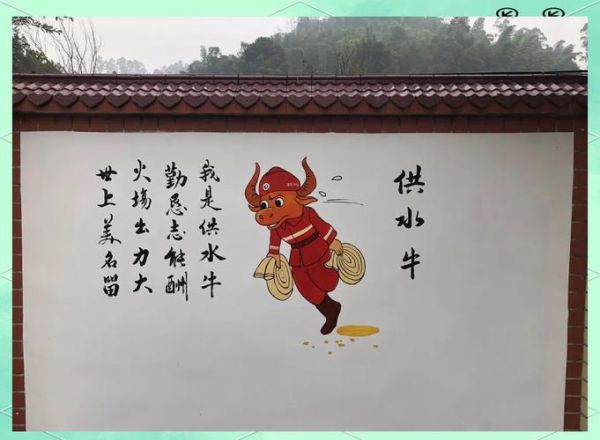 供水牛
我是供水牛
勤恳志能酬
火場出力大
世上美名留